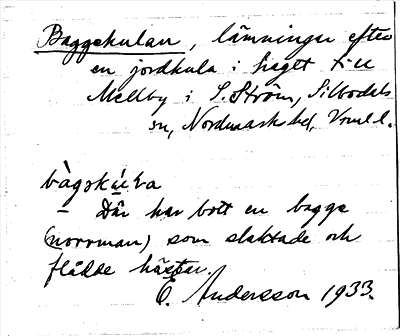 Baggekulan, lämningar efter
en jordkula i haget till
Mellby i S. Ström, Silbodals
sn, Nordmarks hd, Vrml.
bàgskúla
— Där har bott en bagge
(norrman) som slaktade och
flådde hästar.
E. Andersson 1933.